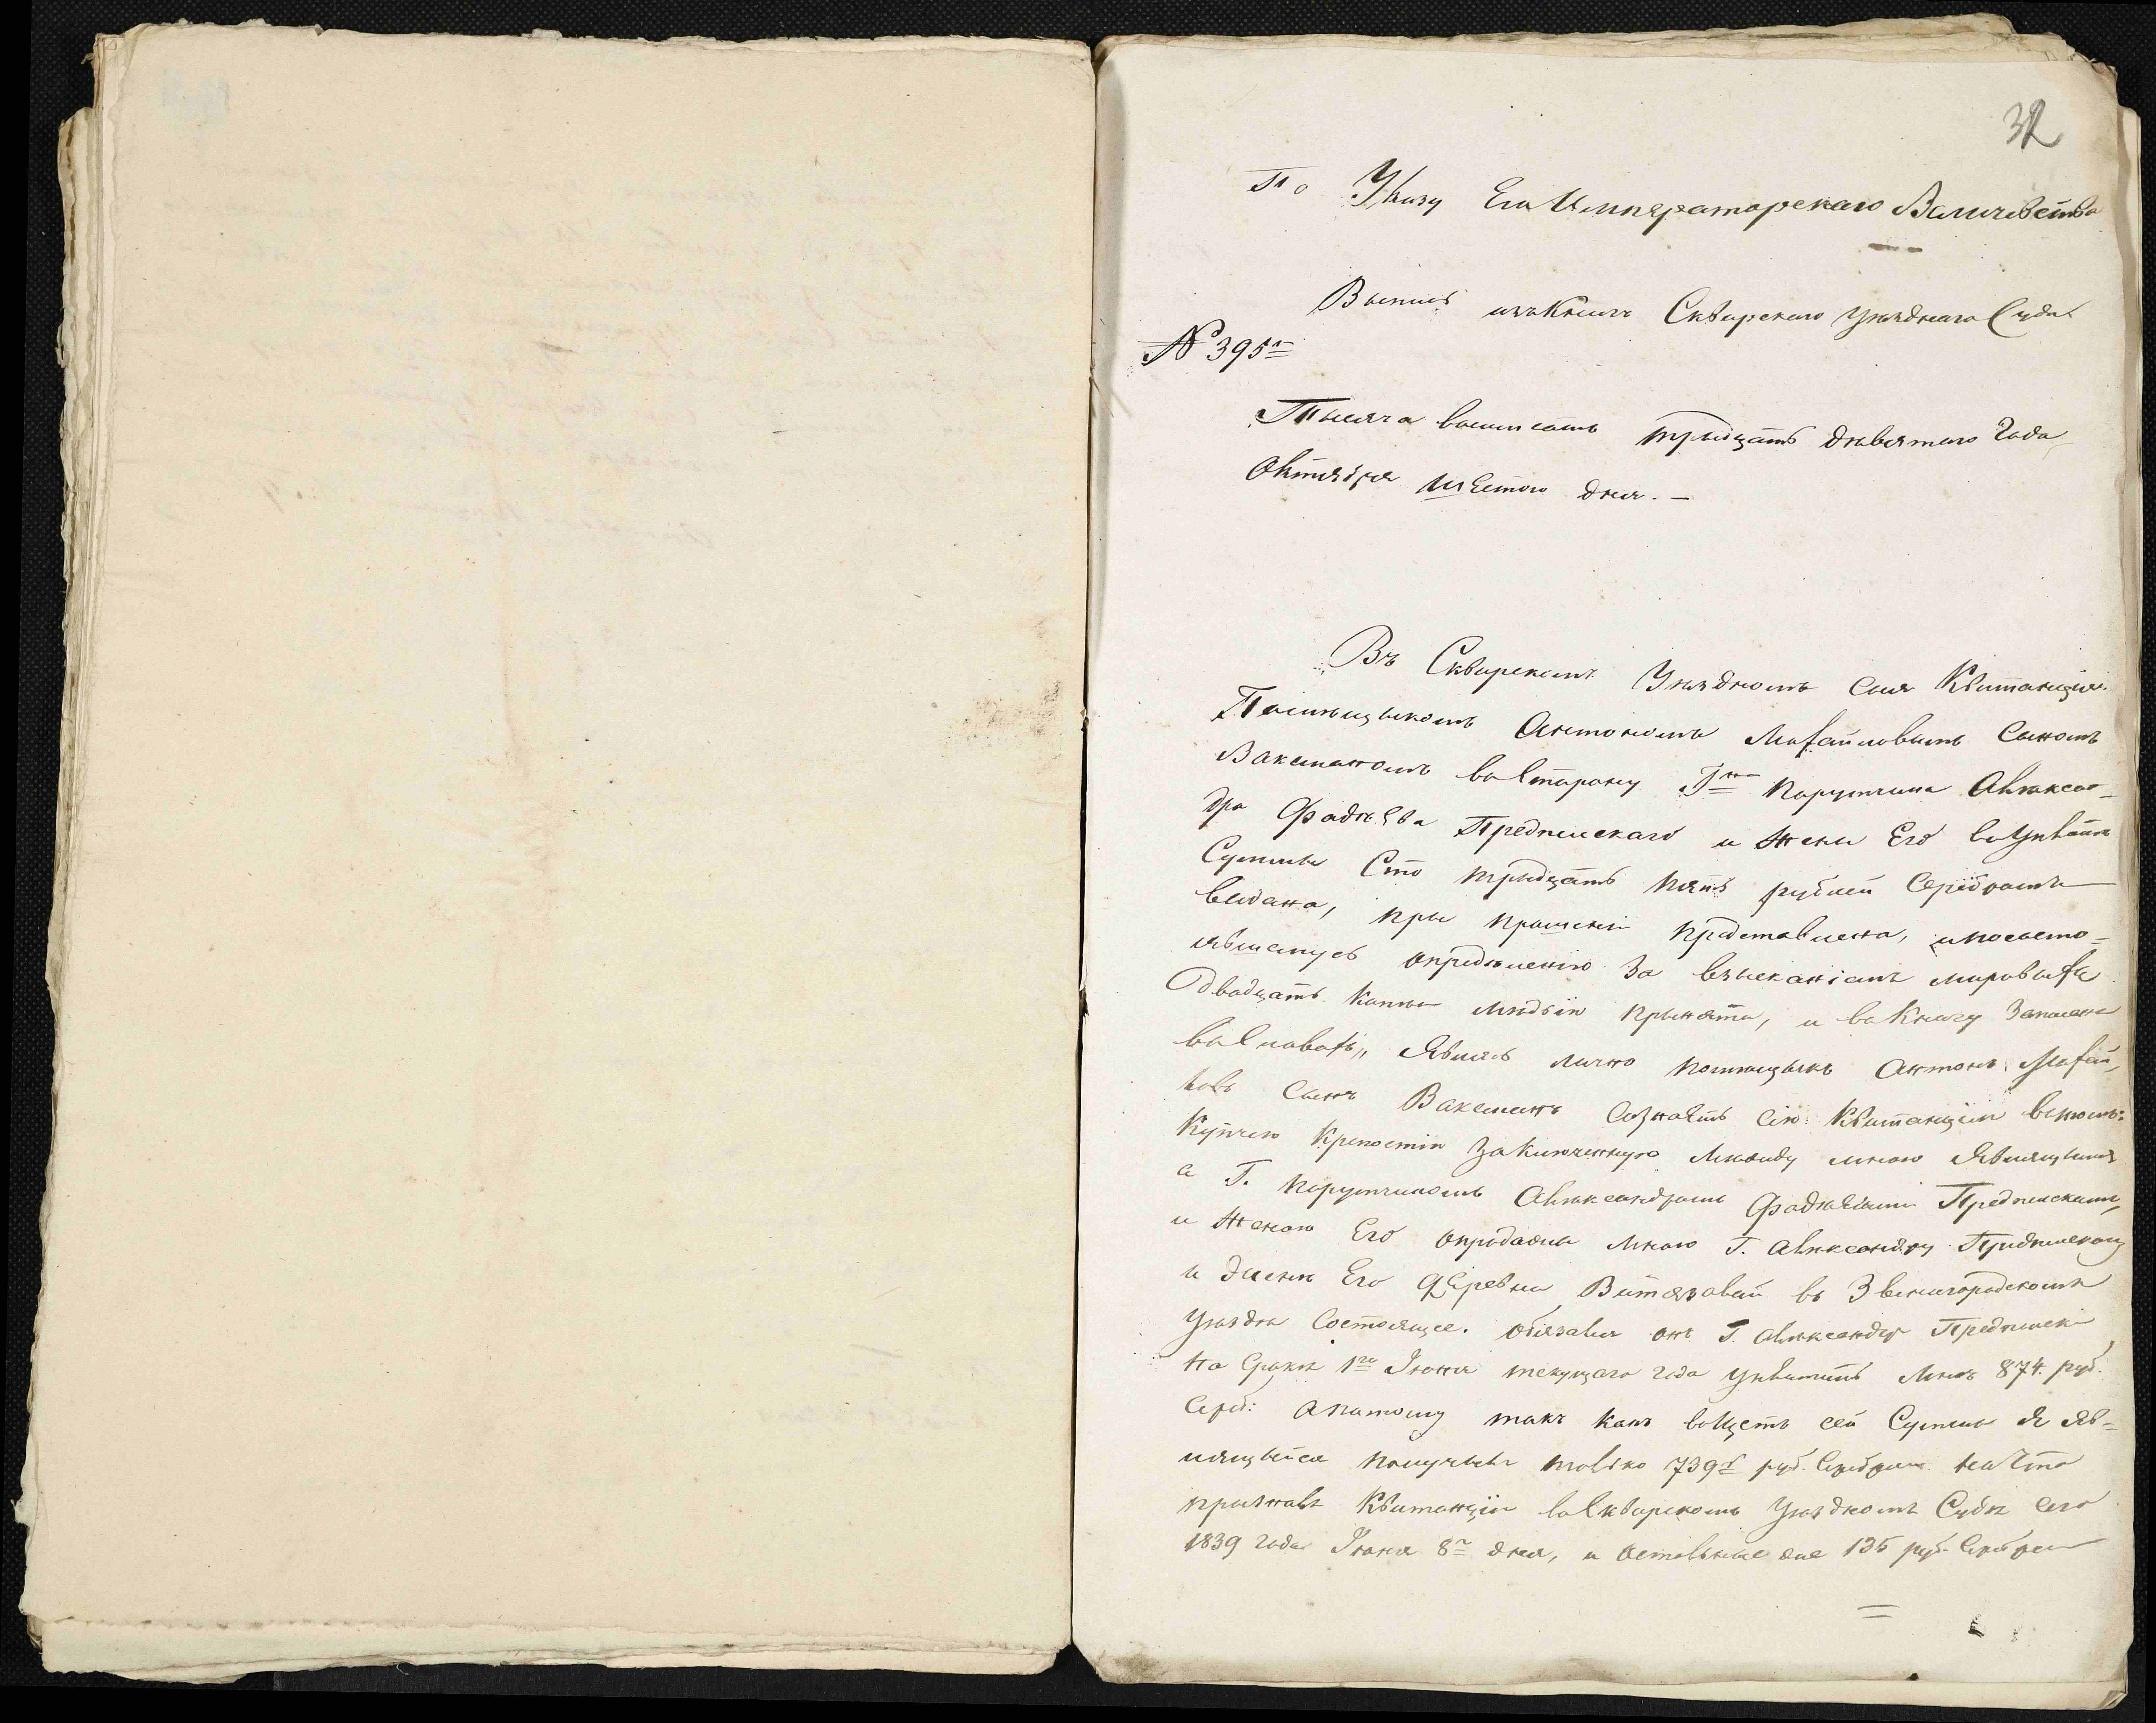 32
По Указу Его Императорскаго Величества
Выпись изъ Книгъ Сквирскаго Уезднаго Суда
№ 395й
Тысяча восимсотъ тридцать дѣвятого Года
Октября шЕстого дня. —
Въ Сквирскомъ Уѣздномъ Сия Квитанция
Помѣщыкомъ Антономъ Михайловымъ Сыномъ
Ваксманомъ вСторону Гна Порутчика Алѣксан-
дра ФадѣЕва Предпелскаго и Жены Его вУплатѣ
Суммы Сто тридцать пять рублей Серебромъ
выдана, при прошеніи прѣдставлена, ипососто-
явшемусь опредѣленію за взысканіемъ мировыхъ
Двадцать Копѣ мѣдью принята, и вКнигу Записана
вСловахъ,, Явясь лично помѣщыкъ Антонъ Михай-
ловъ Сынъ Ваксманъ СознаЕтъ Сію Квитанцію втомъ:
Купчею Крепостію Заключенную Между мною Являщымся
а Г. Порутчикомъ Алѣксандромъ ФадѣЕвымъ Предпелскимъ,
и Женою Его опродажи Мною Г. Алѣксандру Предпелскому
и Женѣ Его ДЕревни Витязовей въ Звенигородскомъ
Уѣздѣ Состоящее. обязался онъ Г. Алѣксандръ Предпелскі
На Срокъ 1го Іюня текущаго года Уплатить Мнѣ 874. руб.
Сереб: Апотому такъ какъ вЩетъ сей Суммы Я Яв-
ляющыйся получылъ толѣко 739ѣ руб. Серебром. наЧто
призналъ Квитанцію вСквирскомъ Уѣздномъ Судѣ Сего
1839 года Іюня 8го дня, и Остальные 135 руб. Серебром